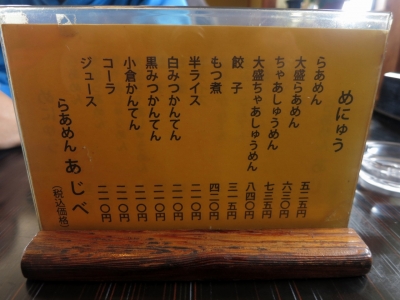 めにゅう
らあめん 五二五円
大盛らあめん 六三〇円
ちゃあしゅうめん 七三五円
大盛ちゃあしゅうめん 八四〇円
餃子 三一五円
もつ煮 四二〇円
半ライス 二一〇円
白みつかんてん 二一〇円
黒みつかんてん 二一〇円
小倉かんてん 二一〇円
コーラ 二一〇円
ジュース 二一〇円
らあめん あじべ
(税込価格)